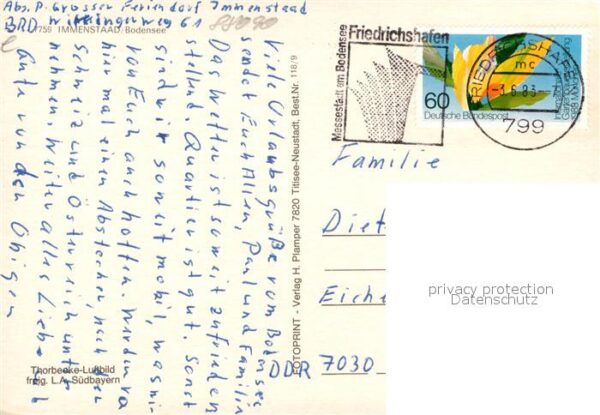 Abs. P. Grosser Feriendorf Immenstaad
BRD
7759 IMMENSTAAD/Bodensee
Viele Urlaubsgrüße vom Bodensee
sendet Euch Allen, Paul und Familie
Das Wetter ist soweit zufrieden
stellend Quartier ist gut. Sonst
sind wir soweit mobil, was wir
von Euch auch hoffen. Werden von
hier mal einen Abstecher, nach der
Schweiz und Österreich unter
nehmen. Weiter alles Liebe u
Gute von den Obigen
Thorbecke-Luftbild
freig. L.A. Südbayern
FOTOPRINT - Verlag H. Plamper 7820 Titisee-Neustadt, Best.Nr. 118/9
Messestadt am Bodensee
Friedrichshafen
FRIEDRICHSHAFEN
mc
-3.6.83-
799
60
Deutsche Bundespost
Familie
Diet
Eiche
DDR 7030
privacy protection
Datenschutz